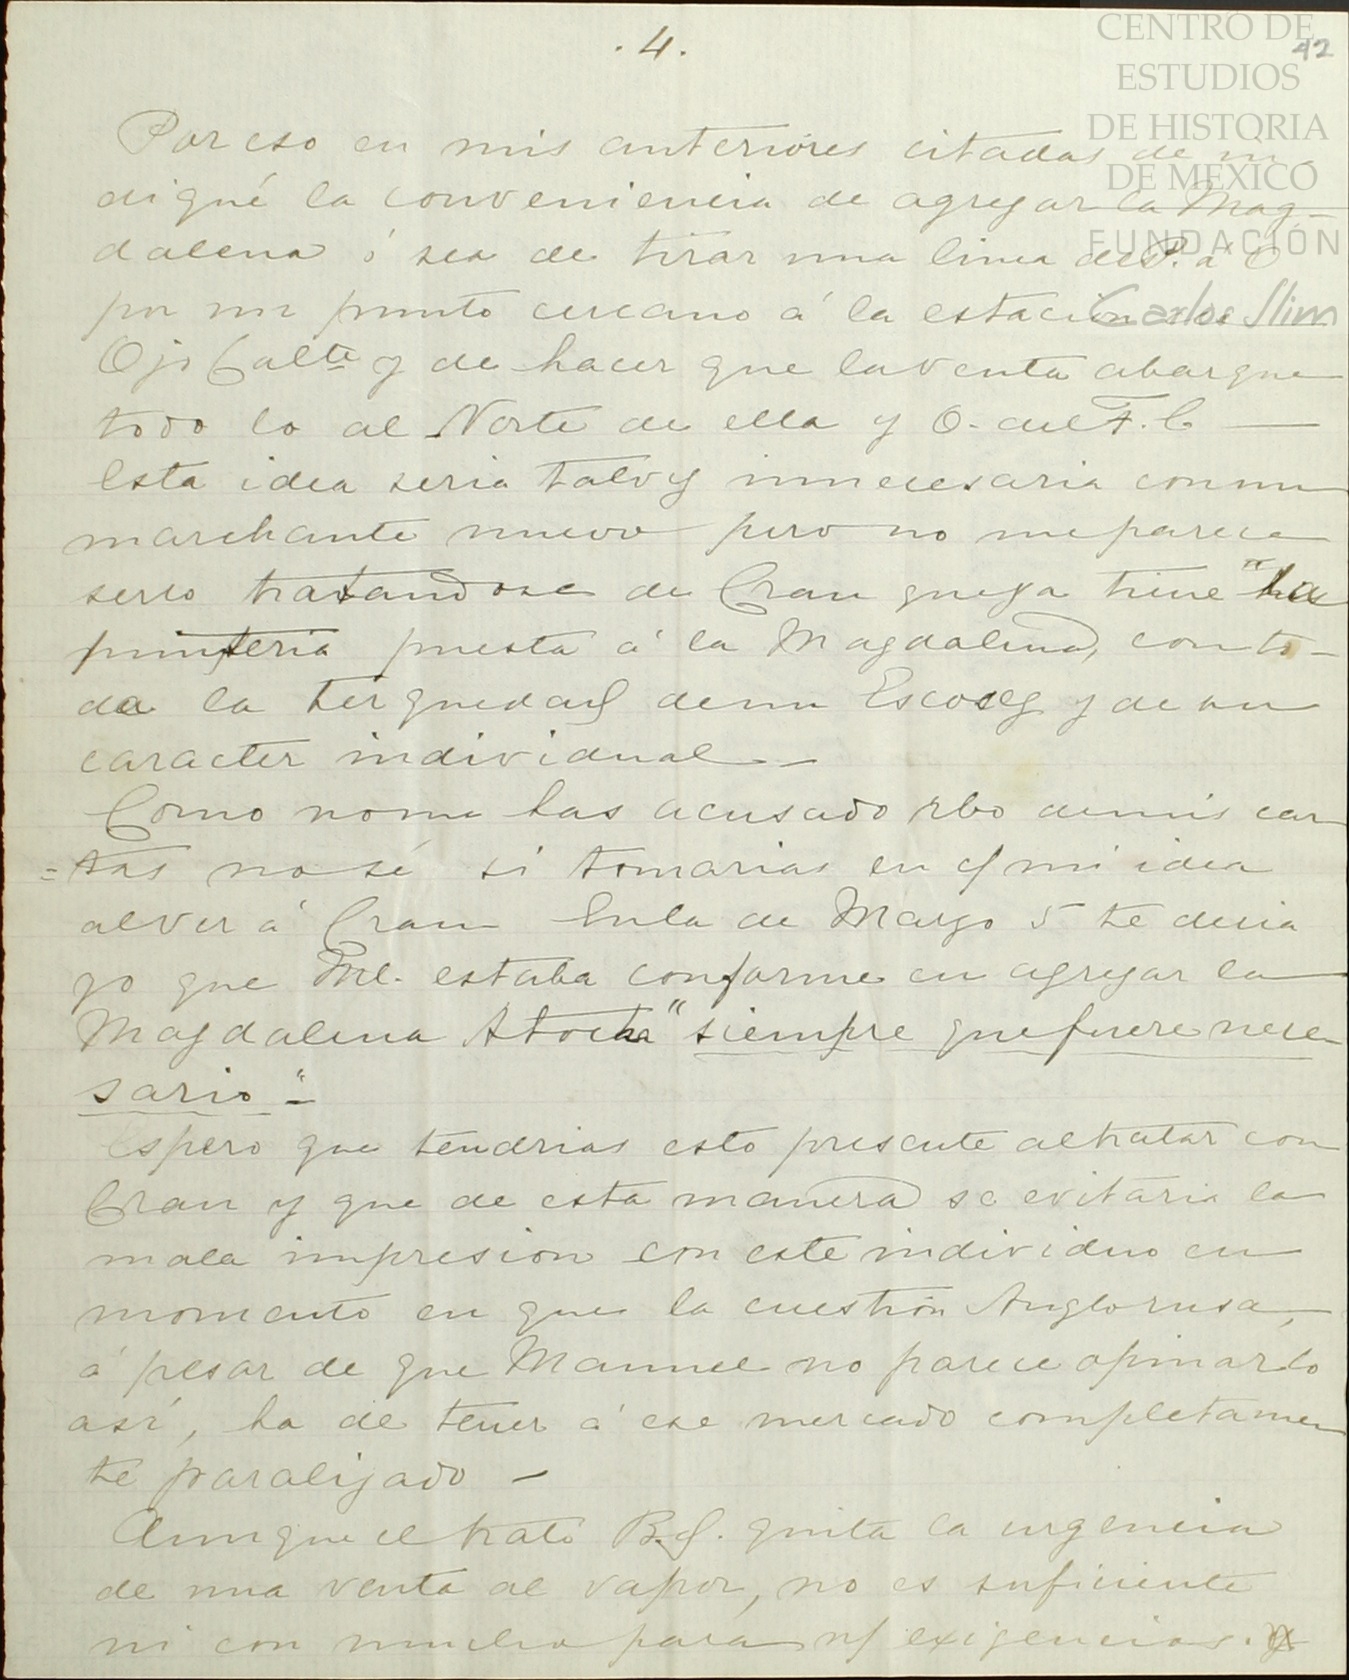 . 4 .
42
CENTRO DE
ESTUDIOS
DE HISTORIA
DE MEXICO
FUNDACIÓN
Carlos Slim
Por eso en mis anteriores citadas de in
diqué la conveniencia de agregar la Mag-
dalena ó sea de tirar una linea de P. á O
por un punto cercano á la estacion de
Ojo Calte y de hacer que la venta abarque
todo lo al Norte de ella y O. del F. C —
Esta idea seria talvez innecesaria con un
marchante nuevo pero no me parece
serlo tratandose de Cran que ya tiene "la
punteria puesta á la Magdalena, con to-
da la terquedad de un Escoses y de su
caracter individual —
Como no me has acusado rbo de mis car
=tas no sé si tomarias en c/ mi idea
al ver á Cran En la de Marzo 5 te decia
yo que Ml. estaba conforme en agregar la
Magdalena Atocha "siempre que fuere nece-
sario" =
Espero que tendrias esto presente al tratar con
Cran y que de esta manera se evitaria la
mala impresion con este individuo en
momento en que la cuestión Anglorusa,
á pesar de que Manuel no parece opinarlo
así, ha de tener á ese mercado completamen
te paralizado —
Aunque el trato B.S. quita la urgencia
de una venta al vapor, no es suficiente
ni con mucho para n/ exigencias.